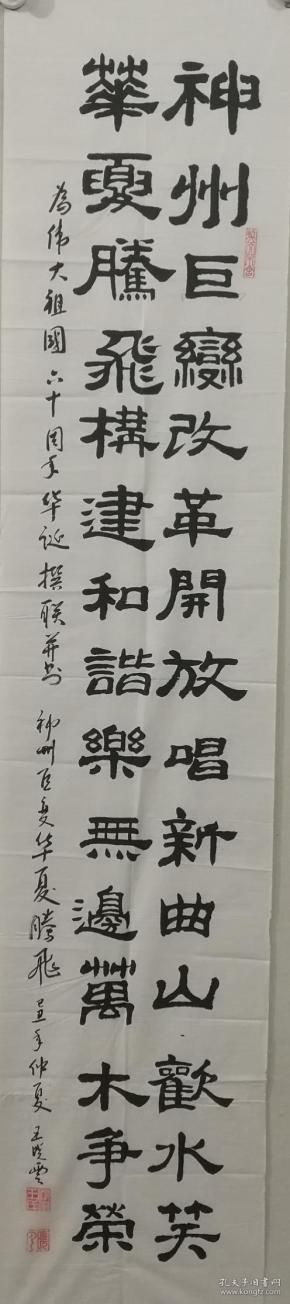 神州巨變改革開放唱新曲山歡水笑
華夏騰飛構建和諧樂無邊萬木爭榮
為偉大祖國六十周年华诞撰联并书 神州巨变华夏腾飛 己丑年仲夏 王晓云
孔夫子旧书网